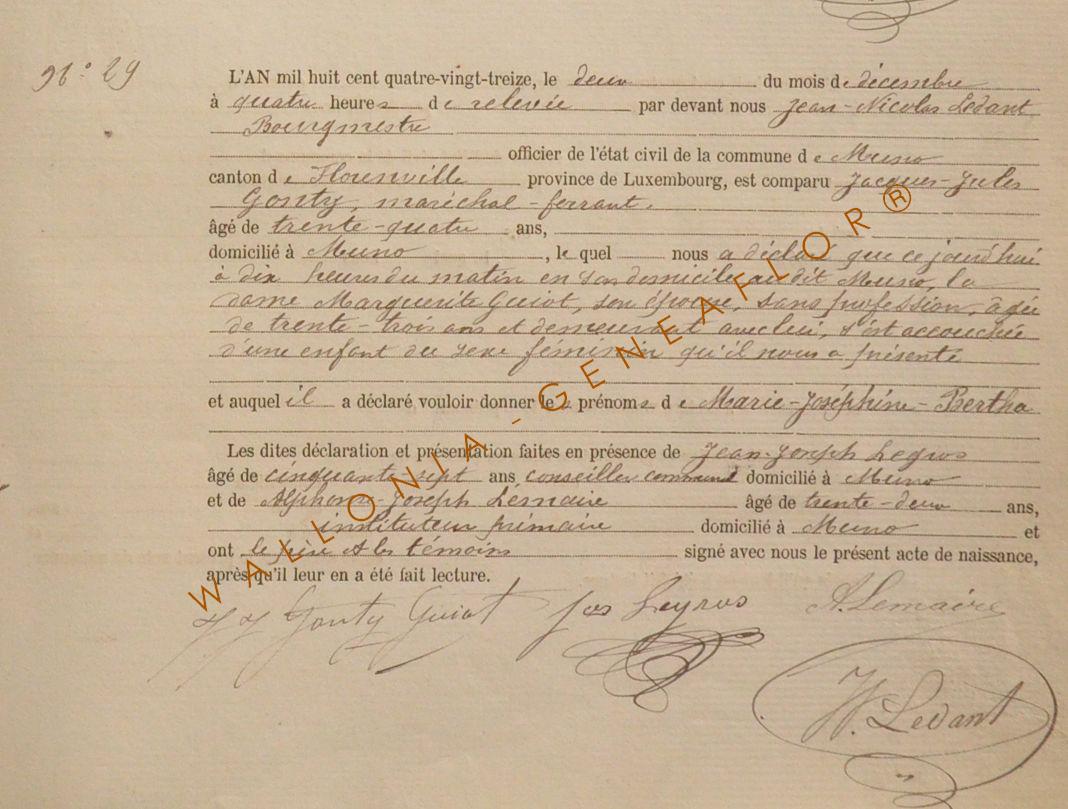 N° 29
L'AN mil huit cent quatre-vingt-treize, le deux du mois de décembre
à quatre heures de relevée par devant nous Jean-Nicolas Ledant
Bourgmestre
officier de l'état civil de la commune de Muno
canton de Florenville province de Luxembourg, est comparu Jacques-Jules
Gonty, maréchal-ferrant.
âgé de trente-quatre ans,
domicilié à Muno, lequel nous a déclaré que cejourd'hui
à dix heures du matin en son domicile au dit Muno, la
dame Marguerite Guiot, son épouse, sans profession, âgée
de trente-trois ans et demeurant avec lui, s'est accouchée
d'une enfant du sexe féminin qu'il nous a présenté
et auquel il a déclaré vouloir donner les prénoms de Marie-Joséphine-Bertha
Les dites déclaration et présentation faites en présence de Jean-Joseph Legros
âgé de cinquante-sept ans conseiller communal domicilié à Muno
et de Alphonse-Joseph Lemaire âgé de trente-deux ans,
instituteur primaire domicilié à Muno et
ont le père et les témoins signé avec nous le présent acte de naissance,
après qu'il leur en a été fait lecture.
JJ Gonty Guiot Jos Legros A. Lemaire
N. Ledant
WALLONIA-GENEAFLOR®